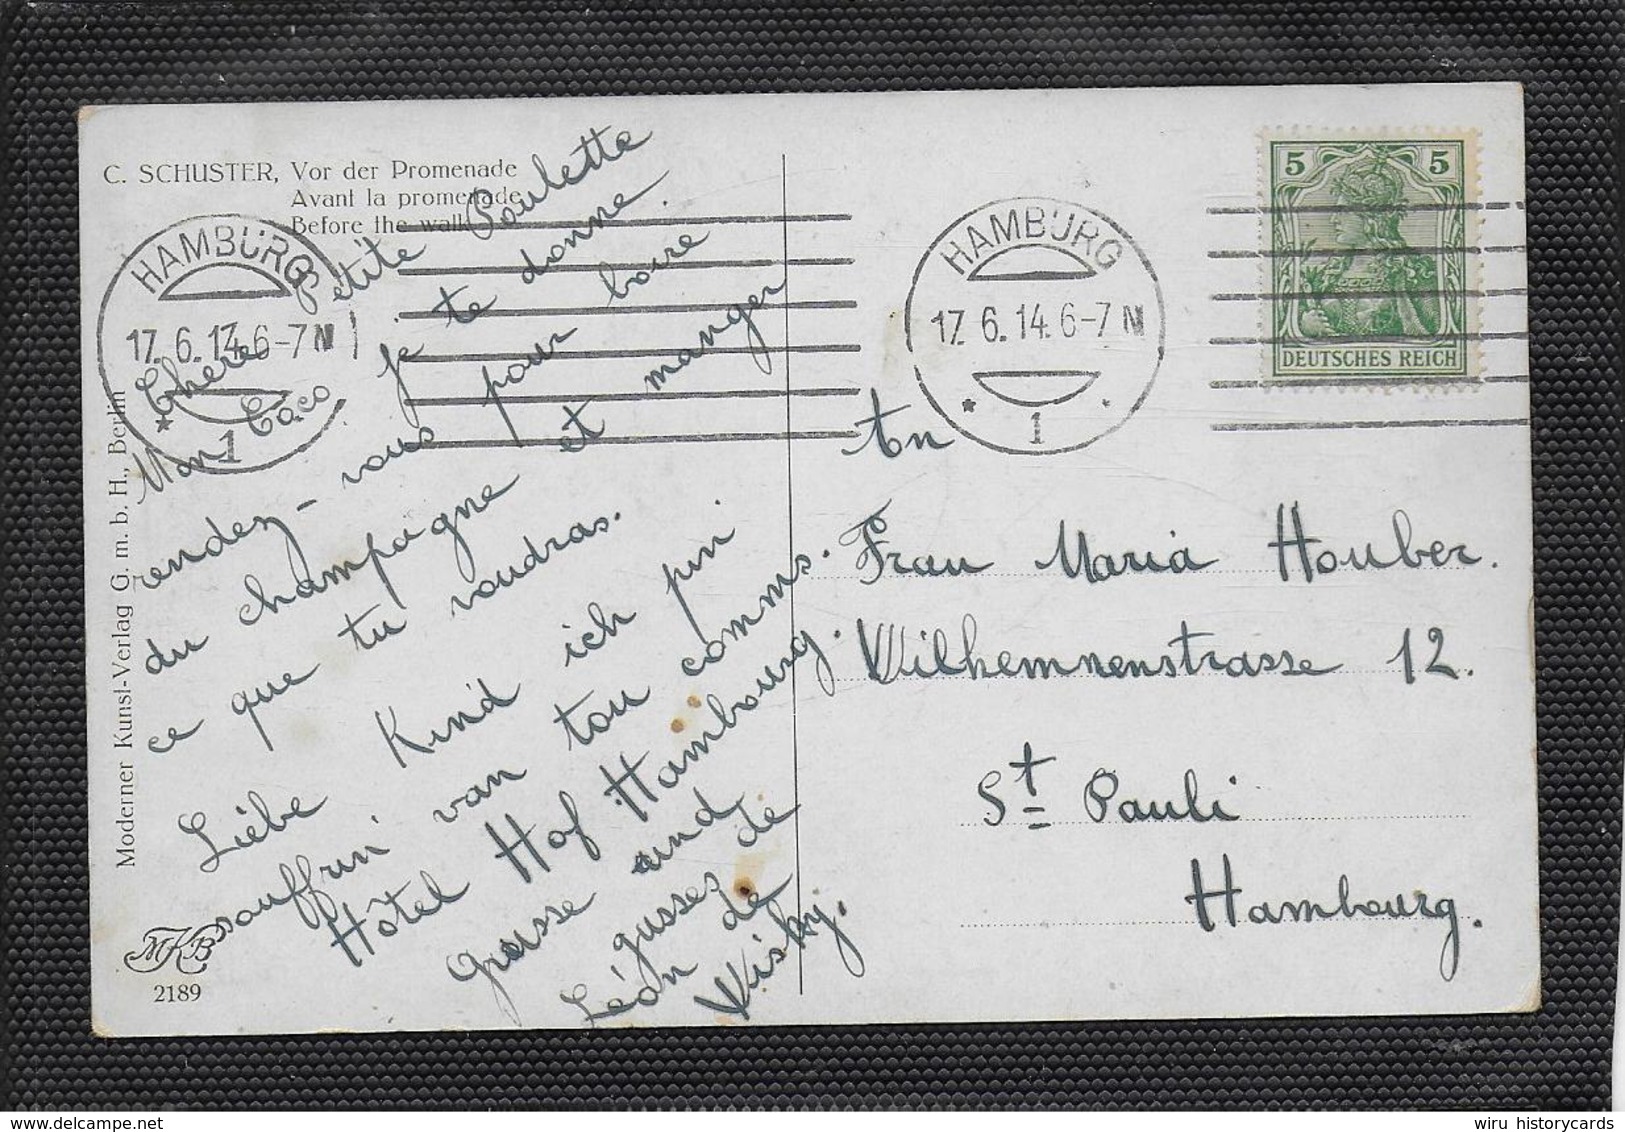 C. SCHUSTER, Vor der Promenade
Avant la promenade
Before the walk
HAMBURG
17.6.14.6-7 N
* 1
HAMBURG
17.6.14.6-7 N
* 1 *
5 5
DEUTSCHES REICH
Moderner Kunst-Verlag G. m. b. H., Berlin
MKB
2189
Chere Petite Poulette
Mon Coco je te donne
rendez-vous pour boire
du champagne et manger
ce que tu voudras.
Liebe Kind ich pin
souffrin van tou comms.
Hôtel Hof Hambourg.
grasse und
gusses de
Léon de
Wisky.
An
Frau Maria Houber.
Wilhemnenstrasse 12.
St Pauli
Hambourg.
wiru historycards